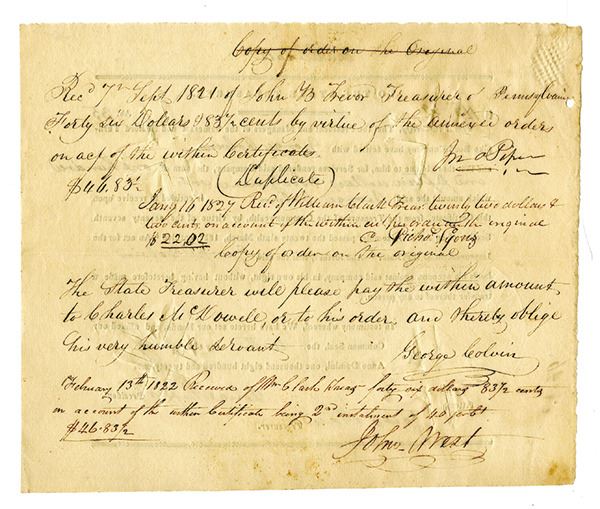 Copy of order on the Original
Recd 7th Sept 1821 of John B Trevor Treasurer of Pennsylvania
Forty six Dollars & 83½ cents by virtue of the annexed orders
on act of the within Certificates
Piper
$46.83½
(Duplicate)
Jany 16 1827 Recd of William Clark Treasr twenty two dollars &
two cents on account of the within as per order on the original
$22.02
Copy of order on the original
The State Treasurer will please pay the within amount
to Charles McDowell or to his order and thereby oblige
his very humble servant
George Colvin
February 13th 1822 Received of Wm Clark forty six dollars 83½ cents
on account of the within Certificate being 2nd instalment of 40 pr ct
$46.83½
John West